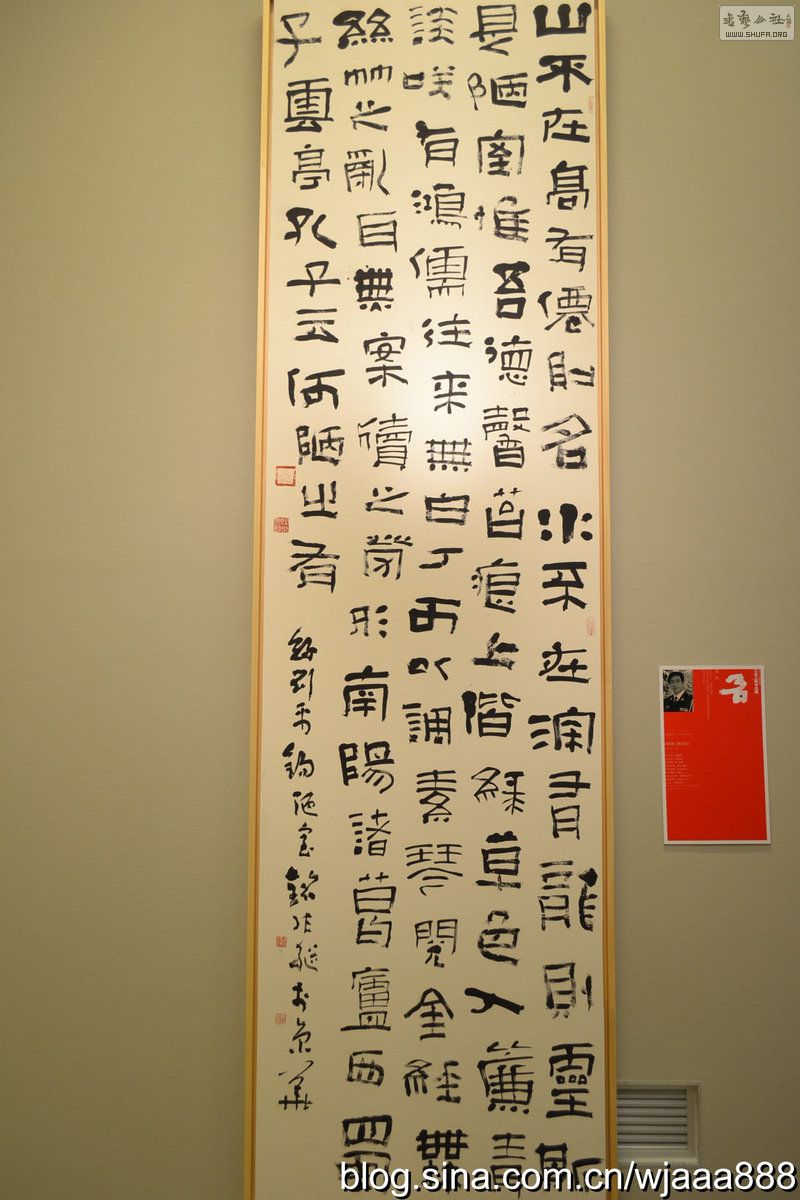 山不在高有僊則名水不在深有龍則靈斯
是陋室惟吾德馨苔痕上階緑草色入簾青
談咲有鴻儒往来無白丁可以調素琴閲金經無
絲竹之亂耳無案牘之勞形南陽諸葛廬西蜀
子雲亭孔子云何陋之有
録劉禹錫陋室銘於京華
書藝公社
WWW.SHUFA.ORG
blog.sina.com.cn/wjaaa888